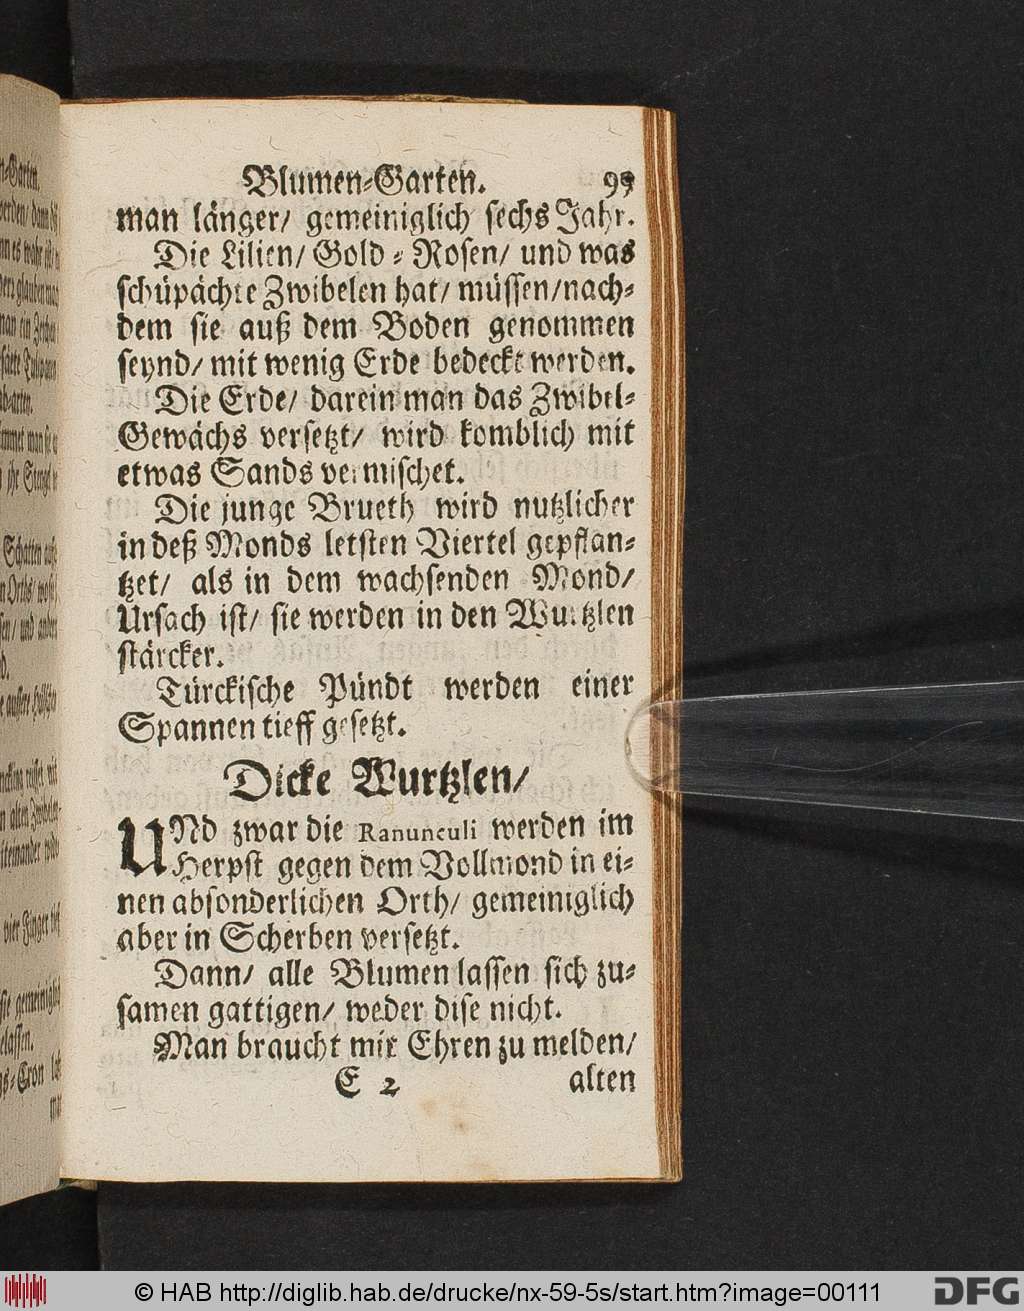 Blumen-Garten. 99
man länger/ gemeiniglich sechs Jahr.
Die Lilien/ Gold-Rosen/ und was
schüpächte Zwibelen hat/ müssen/ nach-
dem sie auß dem Boden genommen
seynd/ mit wenig Erde bedeckt werden.
Die Erde/ darein man das Zwibel-
Gewächs versetzt/ wird komblich mit
etwas Sands vermischet.
Die junge Brueth wird nutzlicher
in deß Monds letsten Viertel gepflan-
tzet/ als in dem wachsenden Mond/
Ursach ist/ sie werden in den Wurtzlen
stärcker.
Türckische Pündt werden einer
Spannen tieff gesetzt.
Dicke Wurtzlen/
UNd zwar die Ranunculi werden im
Herpst gegen dem Vollmond in ei-
nen absonderlichen Orth/ gemeiniglich
aber in Scherben versetzt.
Dann/ alle Blumen lassen sich zu-
samen gattigen/ weder dise nicht.
Man braucht mit Ehren zu melden/
E 2 alten
© HAB http://diglib.hab.de/drucke/nx-59-5s/start.htm?image=00111
DFG